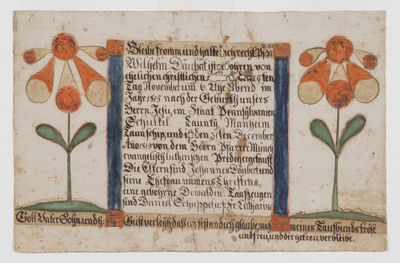 Bleibe fromm und halte dich recht Ps: 37
Wilhelm Daubert ist gebohren von
ehelichen christlichen Eltern den 9 ten
Tag November um 6 Uhr Abend im
Jahr 1815 nach der Geburt unsers
Herrn Jesu, im Staat Pennsylvanien
Schulkil Caunty, Manheim
Taunschip, und ist den 26 sten December
Anno 1815 von dem Herrn Pfarrer Minnig
evangelisch lutherischen Prediger getauft
Die Eltern sind Johannes Daubert und
seine Ehefrau namens Christina,
eine geborne Dewaldin. Taufzeugen
sind Daniel Schappell u: s: Fr: Catharina
Gott Vater Sohn und h: Geist verleyh daß ich bestandich glaube, mich meines Taufbunds tröst
und freu, und dir getreu verbleibe.